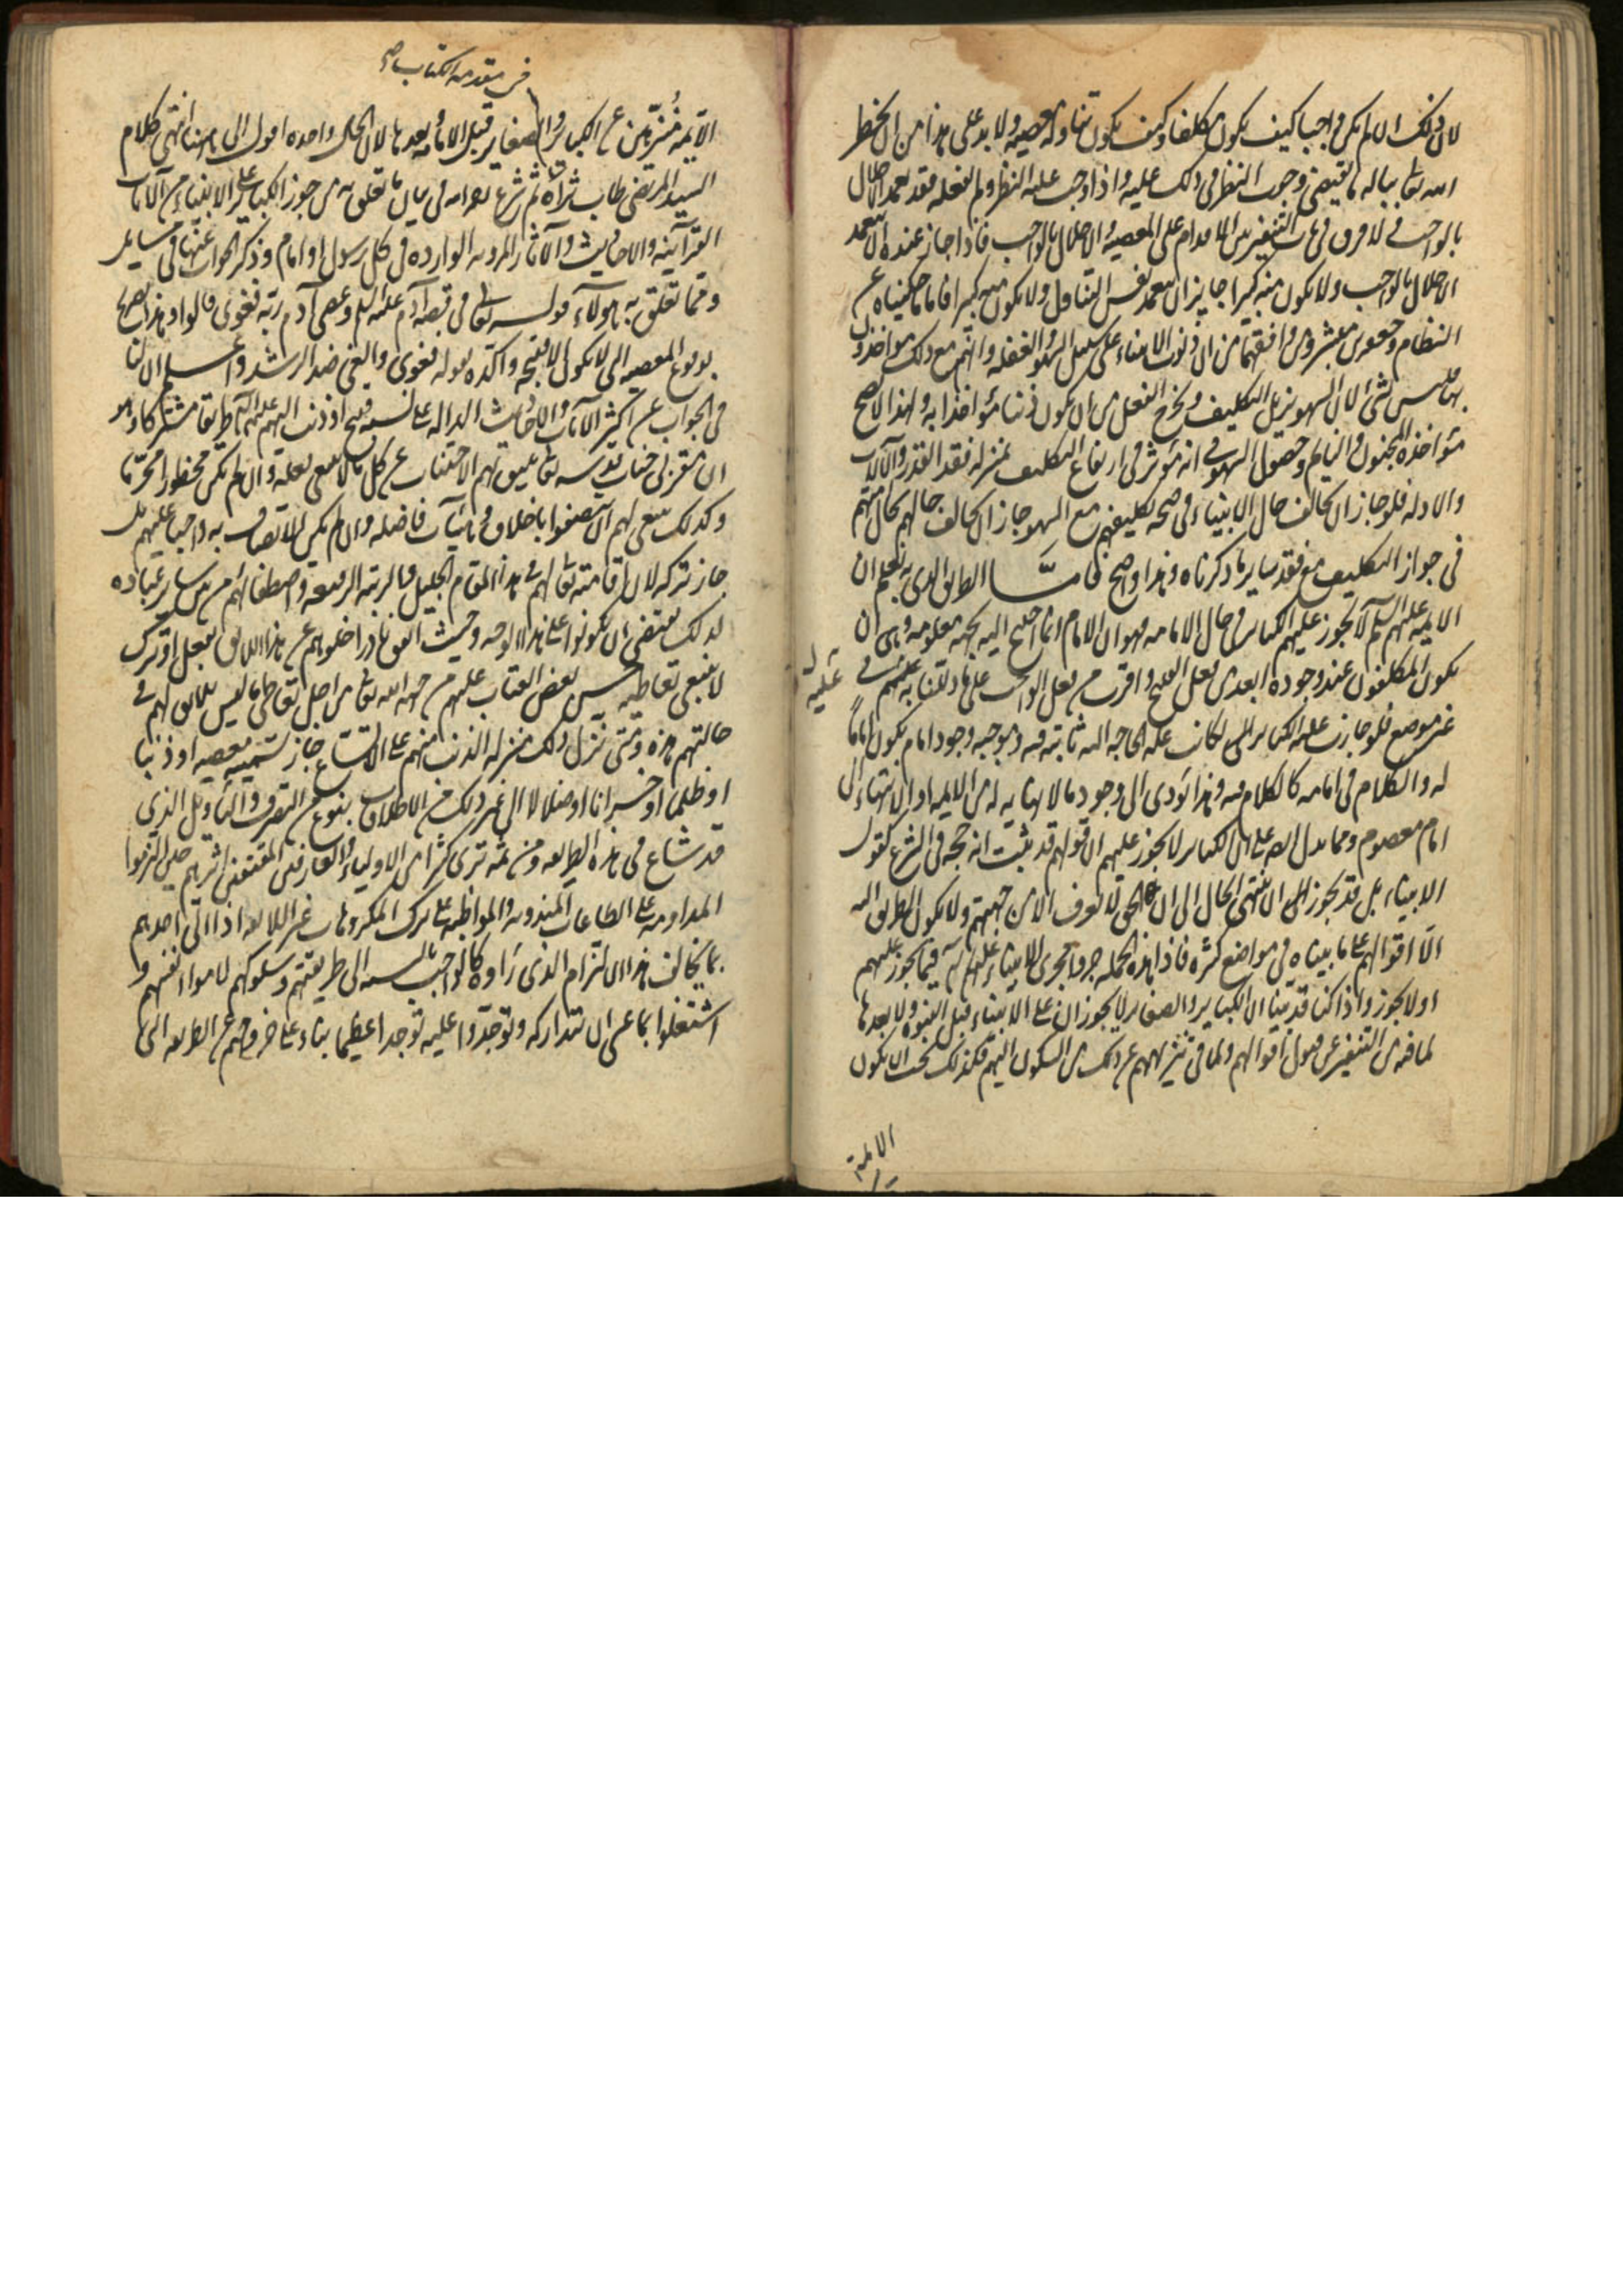 لان ذلك ان لم يكن واجبا كيف يكون مكلفا وكيف يكون تناوله معصيه ولا بد على هذا من ان يخطر
الله تعالى بباله ما يقتضى وجوب النظر فى ذلك عليه واذا وجب عليه النظر ولم يفعله فقد تعمد الاخلال
بالواجب ولا فرق فى باب التنفير بين الاقدام على المعصيه والاخلال بالواجب فاذا جاز عنده ان يتعمد
الاخلال بالواجب ولا يكون منه كبيرا جاز ان يتعمد نفس التناول ولا يكون منه كبيرا فاما ما حكيناه عن
النظام وجعفر بن مبشر ومن وافقهما من ان ذنوب الانبياء على سبيل السهو والغفله وانهم مع ذلك مؤاخذون
بها فليس بشئ لان السهو يزيل التكليف ويخرج الفعل من ان يكون ذنبا مؤاخذا به ولهذا لا يصح
مؤاخذة المجنون والنايم وحصول السهو فى انه مؤثر فى ارتفاع التكليف بمنزله فقد القدر والآلات
والادله فلو جاز ان يخالف حال الانبياء فى صحة تكليفهم مع السهو جاز ان يخالف حالهم لحال اممهم
فى جواز التكليف مع فقد ساير ما ذكرناه وهذا واضح فاما الطريق الذى به يعلم ان
الايمه عليهم السلم لا يجوز عليهم الكباير فى حال الامامه فهو ان الامام انما احتيج اليه لجهه معلومه وهى ان
يكون المكلفون عند وجوده ابعد من فعل القبيح واقرب من فعل الواجب على ما دللنا عليه فى
غير موضع فلو جازت عليه الكباير لكانت علة الحاجه اليه ثابته فيه وموجبه وجود امام يكون اماما
له والكلام فى امامه كالكلام فيه وهذا يؤدى الى وجود ما لا نهايه له من الايمه او الانتهاء الى
امام معصوم ومما يدل ايضا على ان الكباير لا يجوز عليهم ان قولهم قد ثبت انه حجه فى الشرع كقول
الانبياء بل قد يجوز ان ينتهى الحال الى ان الحق لا يعرف الا من جهتهم ولا يكون الطريق اليه
الا اقوالهم على ما بيناه فى مواضع كثيره فاذا هذه الجمله جروا مجرى الانبياء عليهم السلم فيما يجوز عليهم
او لا يجوز واذا كنا قد بينا ان الكباير والصغاير لا يجوزان على الانبياء قبل النبوه ولا بعدها
لما فى ذلك من التنفير عن قبول اقوالهم ولما فى تنزيههم عن ذلك من السكون اليهم فكذلك يجب ان يكون
الائمة
فى مقدمه الكتاب صح
الايمه منزهين عن الكباير والصغاير قبل الامامه وبعدها لان الحال واحده اقول الى هاهنا انتهى كلام
السيد المرتضى طاب ثراه ثم شرع بعد هذا فى بيان ما تعلق به من جوز الكباير على الانبياء من الآيات
القرآنيه والاحاديث والآثار المرويه الوارده فى كل رسول او امام وذكر الجواب عنها فى مسايل
ومما تعلق به هؤلاء قوله تعالى فى قصة آدم عليه السلم وعصى آدم ربه فغوى قالوا وهذا تصريح
بوقوع المعصيه التى لا تكون الا قبيحه واكده بقوله فغوى والغى ضد الرشد واعلم ان لنا
فى الجواب عن اكثر الآيات والاحاديث الداله على نسبة قبيح او ذنب اليهم عليهم السلم طريقا مشتركا وهو
ان مقربى جناب قدسه تعالى يليق بهم الاجتناب عن كل ما لا ينبغى فعله وان لم يكن محظورا محرما
وكذلك ينبغى لهم ان يتصفوا باخلاق وهيآت فاضله وان لم يكن الاتصاف به واجبا عليهم بل
جاز تركه لان اقامته تعالى لهم فى هذا المقام الجليل والرتبه الرفيعه واصطفائهم من بين ساير عباده
لذلك يقتضى ان يكونوا على هذا الوجه وحيث اتفق نادرا خلوهم عن هذا اللايق بفعل او ترك
لا ينبغى تعاطيه حسن بعض العتاب عليهم من جهة الله تعالى من اجل تعاطى ما ليس يليق لهم فى
حالتهم هذه ومتى تنزل ذلك منزله الذنب منهم على الاتساع جاز تسميته معصيه او ذنبا
او ظلما او خسرانا او ضلالا الى غير ذلك من الاطلاق بنوع من التصرف والتأويل الذى
قد شاع فى هذه الطريقه ومن ثمه ترى كثيرا من الاولياء والعارفين المقتفين اثرهم حين التزموا
المداومه على الطاعات المندوبه والمواظبه على ترك المكروهات غير اللايقه اذا اتى احدهم
بما يخالف هذا الالتزام الذى رأوه كالواجب بالنسبه الى طريقتهم وسلوكهم لاموا انفسهم و
اشتغلوا بما عسى ان يتداركه وتوجدوا عليه توجدا عظيما بناء على خروجهم عن الطريقه التى